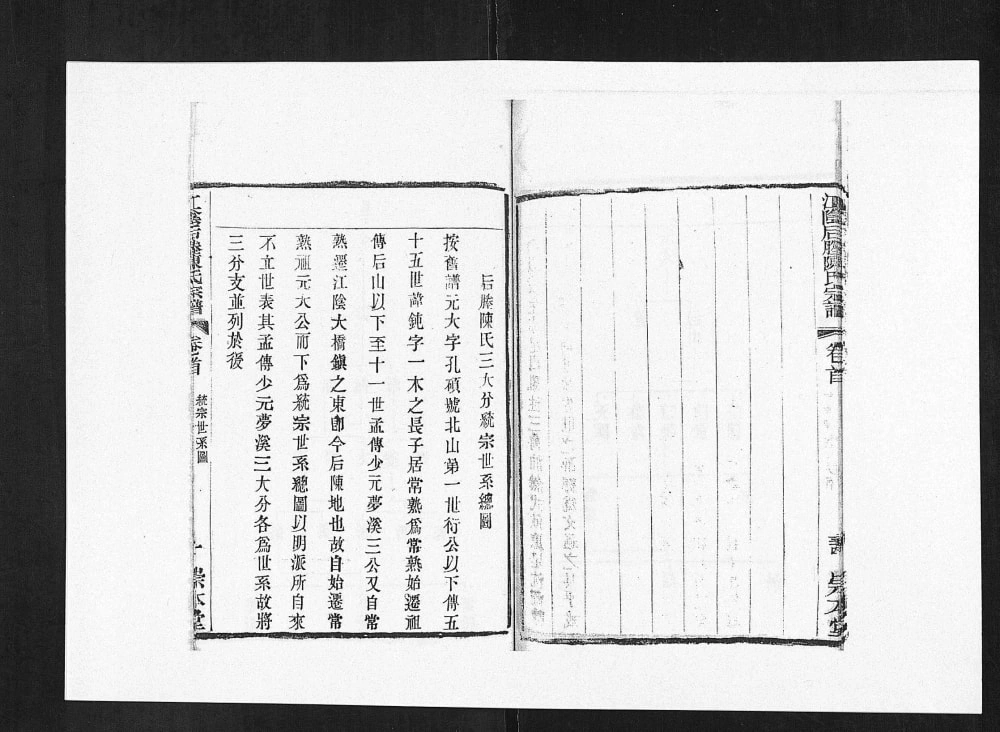 江陰后塍陳氏宗譜
卷首
崇本堂
后塍陳氏三大分統宗世系總圖
按舊譜元大字孔碩號北山第一世衍公以下傳五
十五世諱鈍字一木之長子居常熟爲常熟始遷祖
傳后山以下至十一世孟傳少元夢溪三公又自常
熟遷江陰大橋鎭之東卽今后陳地也故自始遷常
熟祖元大公而下爲統宗世系總圖以明派所自來
不立世表其孟傳少元夢溪三大分各爲世系故將
三分支並列於後
江陰后塍陳氏宗譜
卷之首
統宗世系圖
一
崇本堂